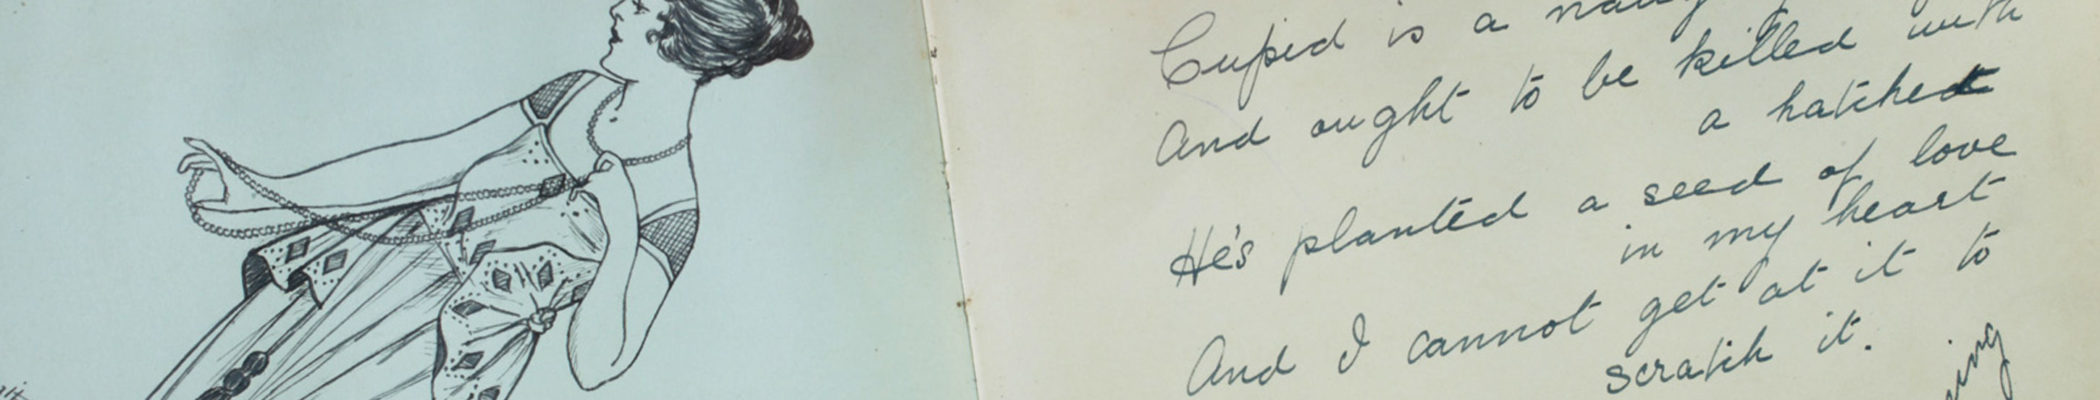 Cupid is a
And ought to be killed with
a hatchet
He's planted a seed of love
in my heart
And I cannot get at it to
scratch it.